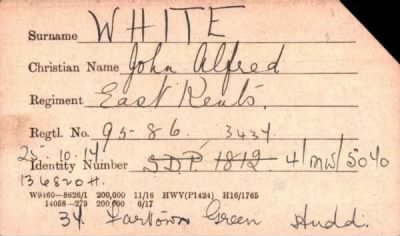 Surname WHITE
Christian Name John Alfred
Regiment East Kents.
Regtl. No. 9586, 3434
25.10.17
Identity Number S.D.P. 1812. 4/MW/5040
136820H.
W9160—8626/1 200,000 11/16 HWV(P1424) H16/1765
14058—279 200,000 6/17
34 Fartown Green Hudd.